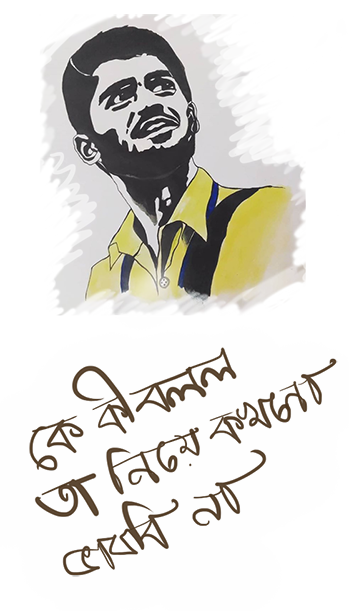 কে কী বলল
তা নিয়ে কখনো
ভাবি না